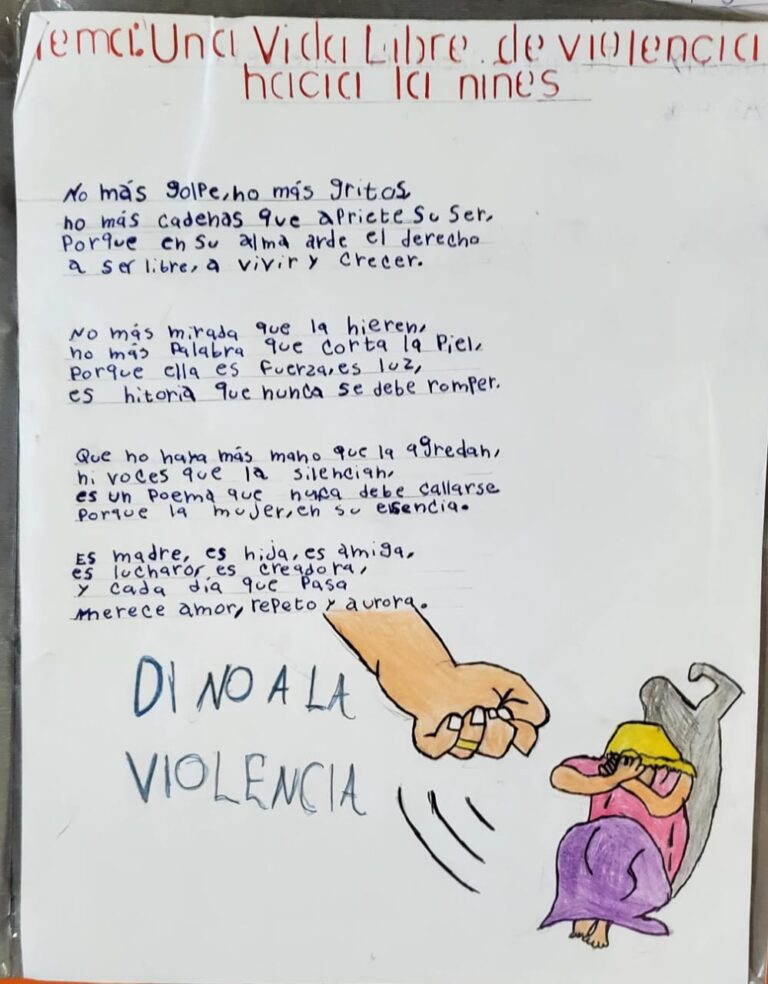 Tema: Una Vida Libre de violencia
hacia la niñes
No más golpe, no más gritos,
no más cadenas que apriete su ser,
Porque en su alma arde el derecho
a ser libre, a vivir y crecer.
No más mirada que la hieren,
no más Palabra que corta la Piel,
Porque ella es fuerza, es luz,
es hitoria que nunca se debe romper.
Que no haya más mano que la agredan,
ni voces que la silencian,
es un Poema que nunca debe callarse
Porque la mujer, en su esencia.
Es madre, es hija, es amiga,
es lucharor, es creadora,
y cada día que Pasa
merece amor, repeto y aurora.
DI NO A LA
VIOLENCIA